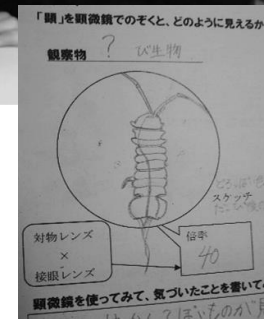 「顕」を顕微鏡でのぞくと、どのように見えるか
観察物 ? び生物
スケッチ
対物レンズ
×
接眼レンズ
倍率
40
顕微鏡を使ってみて、気づいたことを書いて
ぽいものが見